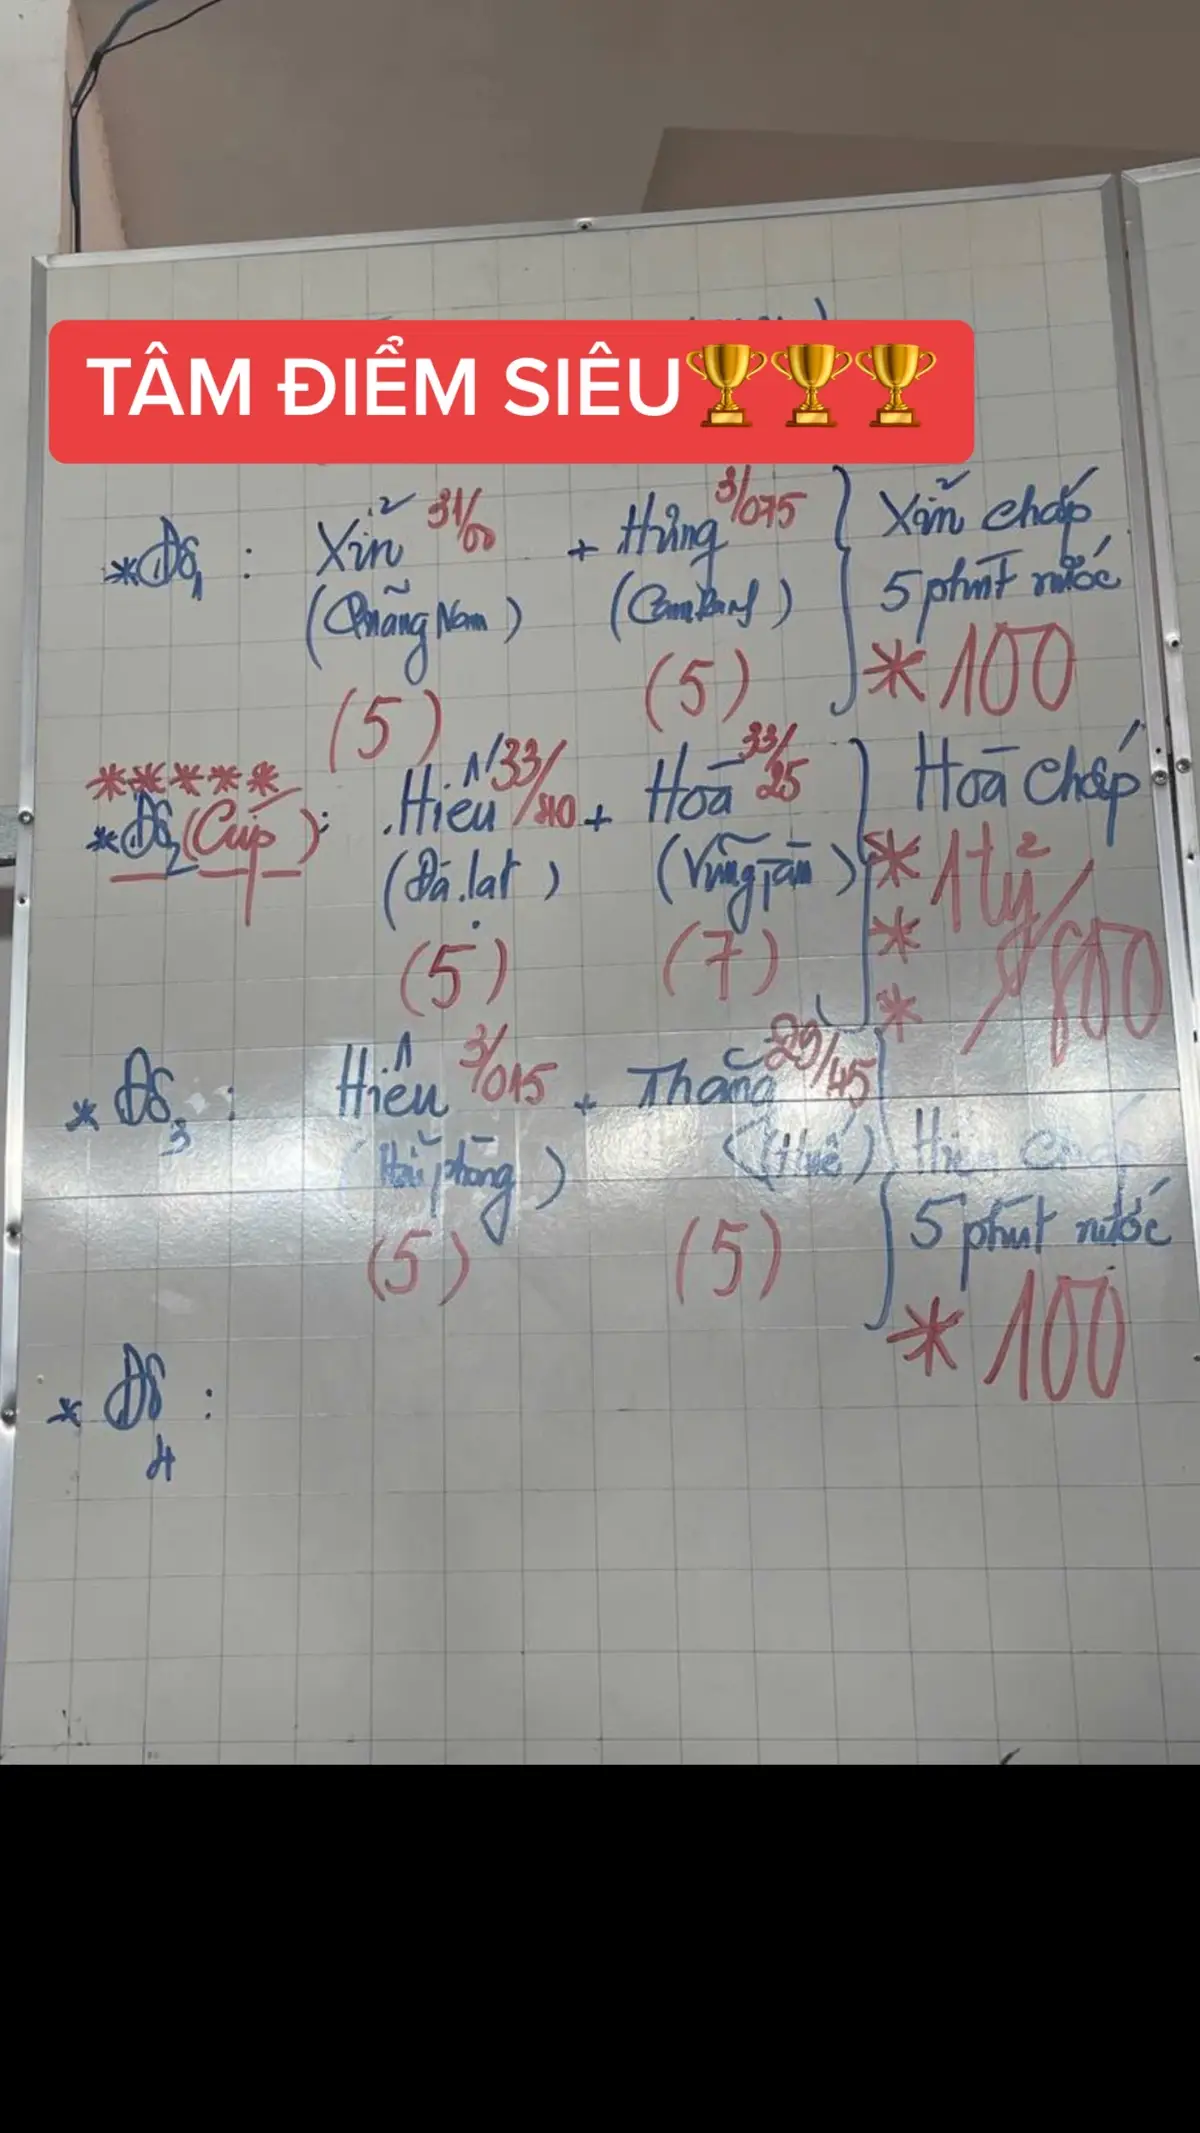 TÂM ĐIỂM SIÊU🏆🏆🏆
*Độ1 : Xỉn 31/00 + Hưng 3/075 } Xỉn chấp
(Quãng Nam) (CamRanh) 5 phút nước
(5) (5) * 100
*****
*Độ2 (Cúp): Hiếu + Hoà 33/25 } Hoà chấp
(Đà.lạt) (Vũng tàu) * 1 tỷ/800
(5) (7) * *
* Độ3 : Hiếu 3/015 + Thắng 29/45
(Hải phòng) (Huế) Hiếu chấp
5 phút nước
(5) (5) * 100
* Độ4 :